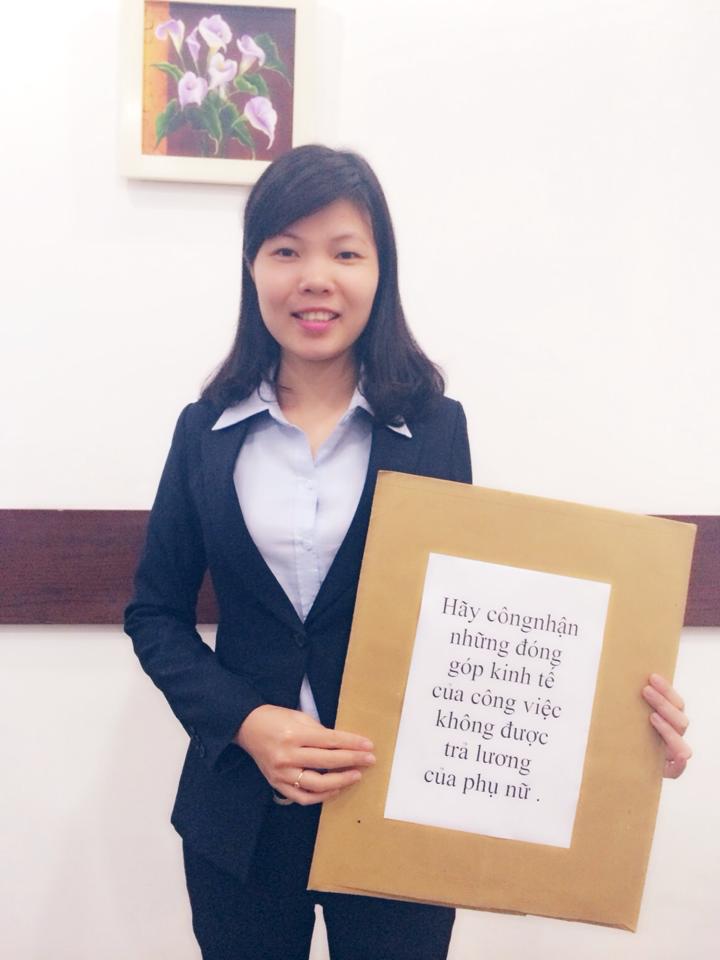 Hãy côngnhận
những đóng
góp kinh tế
của công việc
không được
trả lương
của phụ nữ .